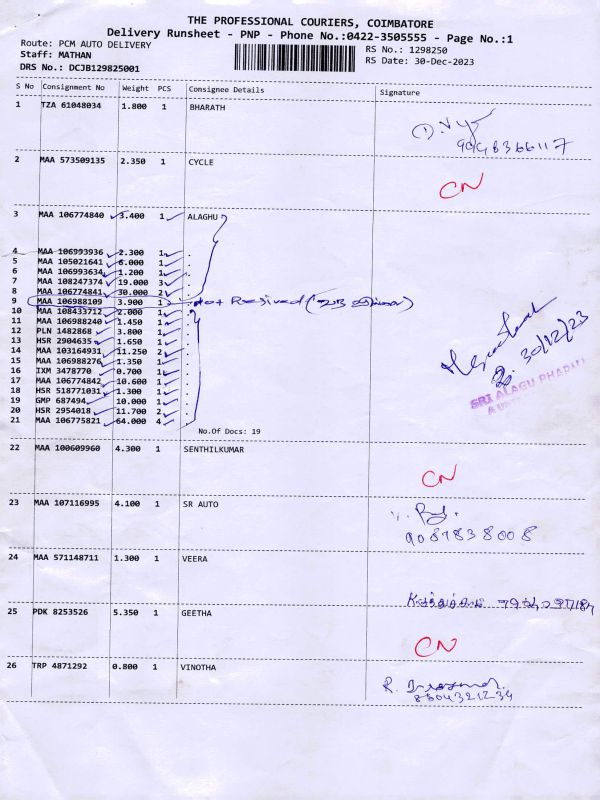 THE PROFESSIONAL COURIERS, COIMBATORE
Delivery Runsheet - PNP - Phone No.:0422-3505555 - Page No.:1
Route: PCM AUTO DELIVERY
RS No.: 1298250
Staff: MATHAN
RS Date: 30-Dec-2023
DRS No.: DCJB129825001
S No Consignment No Weight PCS Consignee Details Signature
1 TZA 61048034 1.800 1 BHARATH
2 MAA 573509135 2.350 1 CYCLE
CN
3 MAA 106774840 3.400 1 ALAGHU
4 MAA 106993936 2.300 1 .
5 MAA 105021641 6.000 1 .
6 MAA 106993634 1.200 1 .
7 MAA 108247374 19.000 3 .
8 MAA 106774841 30.000 2 .
9 MAA 106988109 3.900 1 . Not Resived
10 MAA 108433712 2.000 1 .
11 MAA 106988240 1.450 1 .
12 PLN 1482868 3.800 1 .
13 HSR 2904635 1.650 1 .
14 MAA 103164931 11.250 2 .
15 MAA 106988276 1.350 1 .
16 IXM 3478770 0.700 1 .
17 MAA 106774842 10.600 1 .
18 HSR 518771031 1.300 1 .
19 GMP 687494 10.000 1 .
20 HSR 2954018 11.700 2 .
21 MAA 106775821 64.000 4 .
30/12/23
SRI ALAGU
No.Of Docs: 19
22 MAA 100609960 4.300 1 SENTHILKUMAR
CN
23 MAA 107116995 4.100 1 SR AUTO
9087838008
24 MAA 571148711 1.300 1 VEERA
25 PDK 8253526 5.350 1 GEETHA
CN
26 TRP 4871292 0.800 1 VINOTHA
8604321234